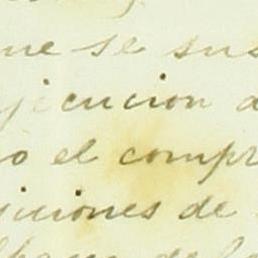 ue se sus
ejecucion d
o el compr
siciones de